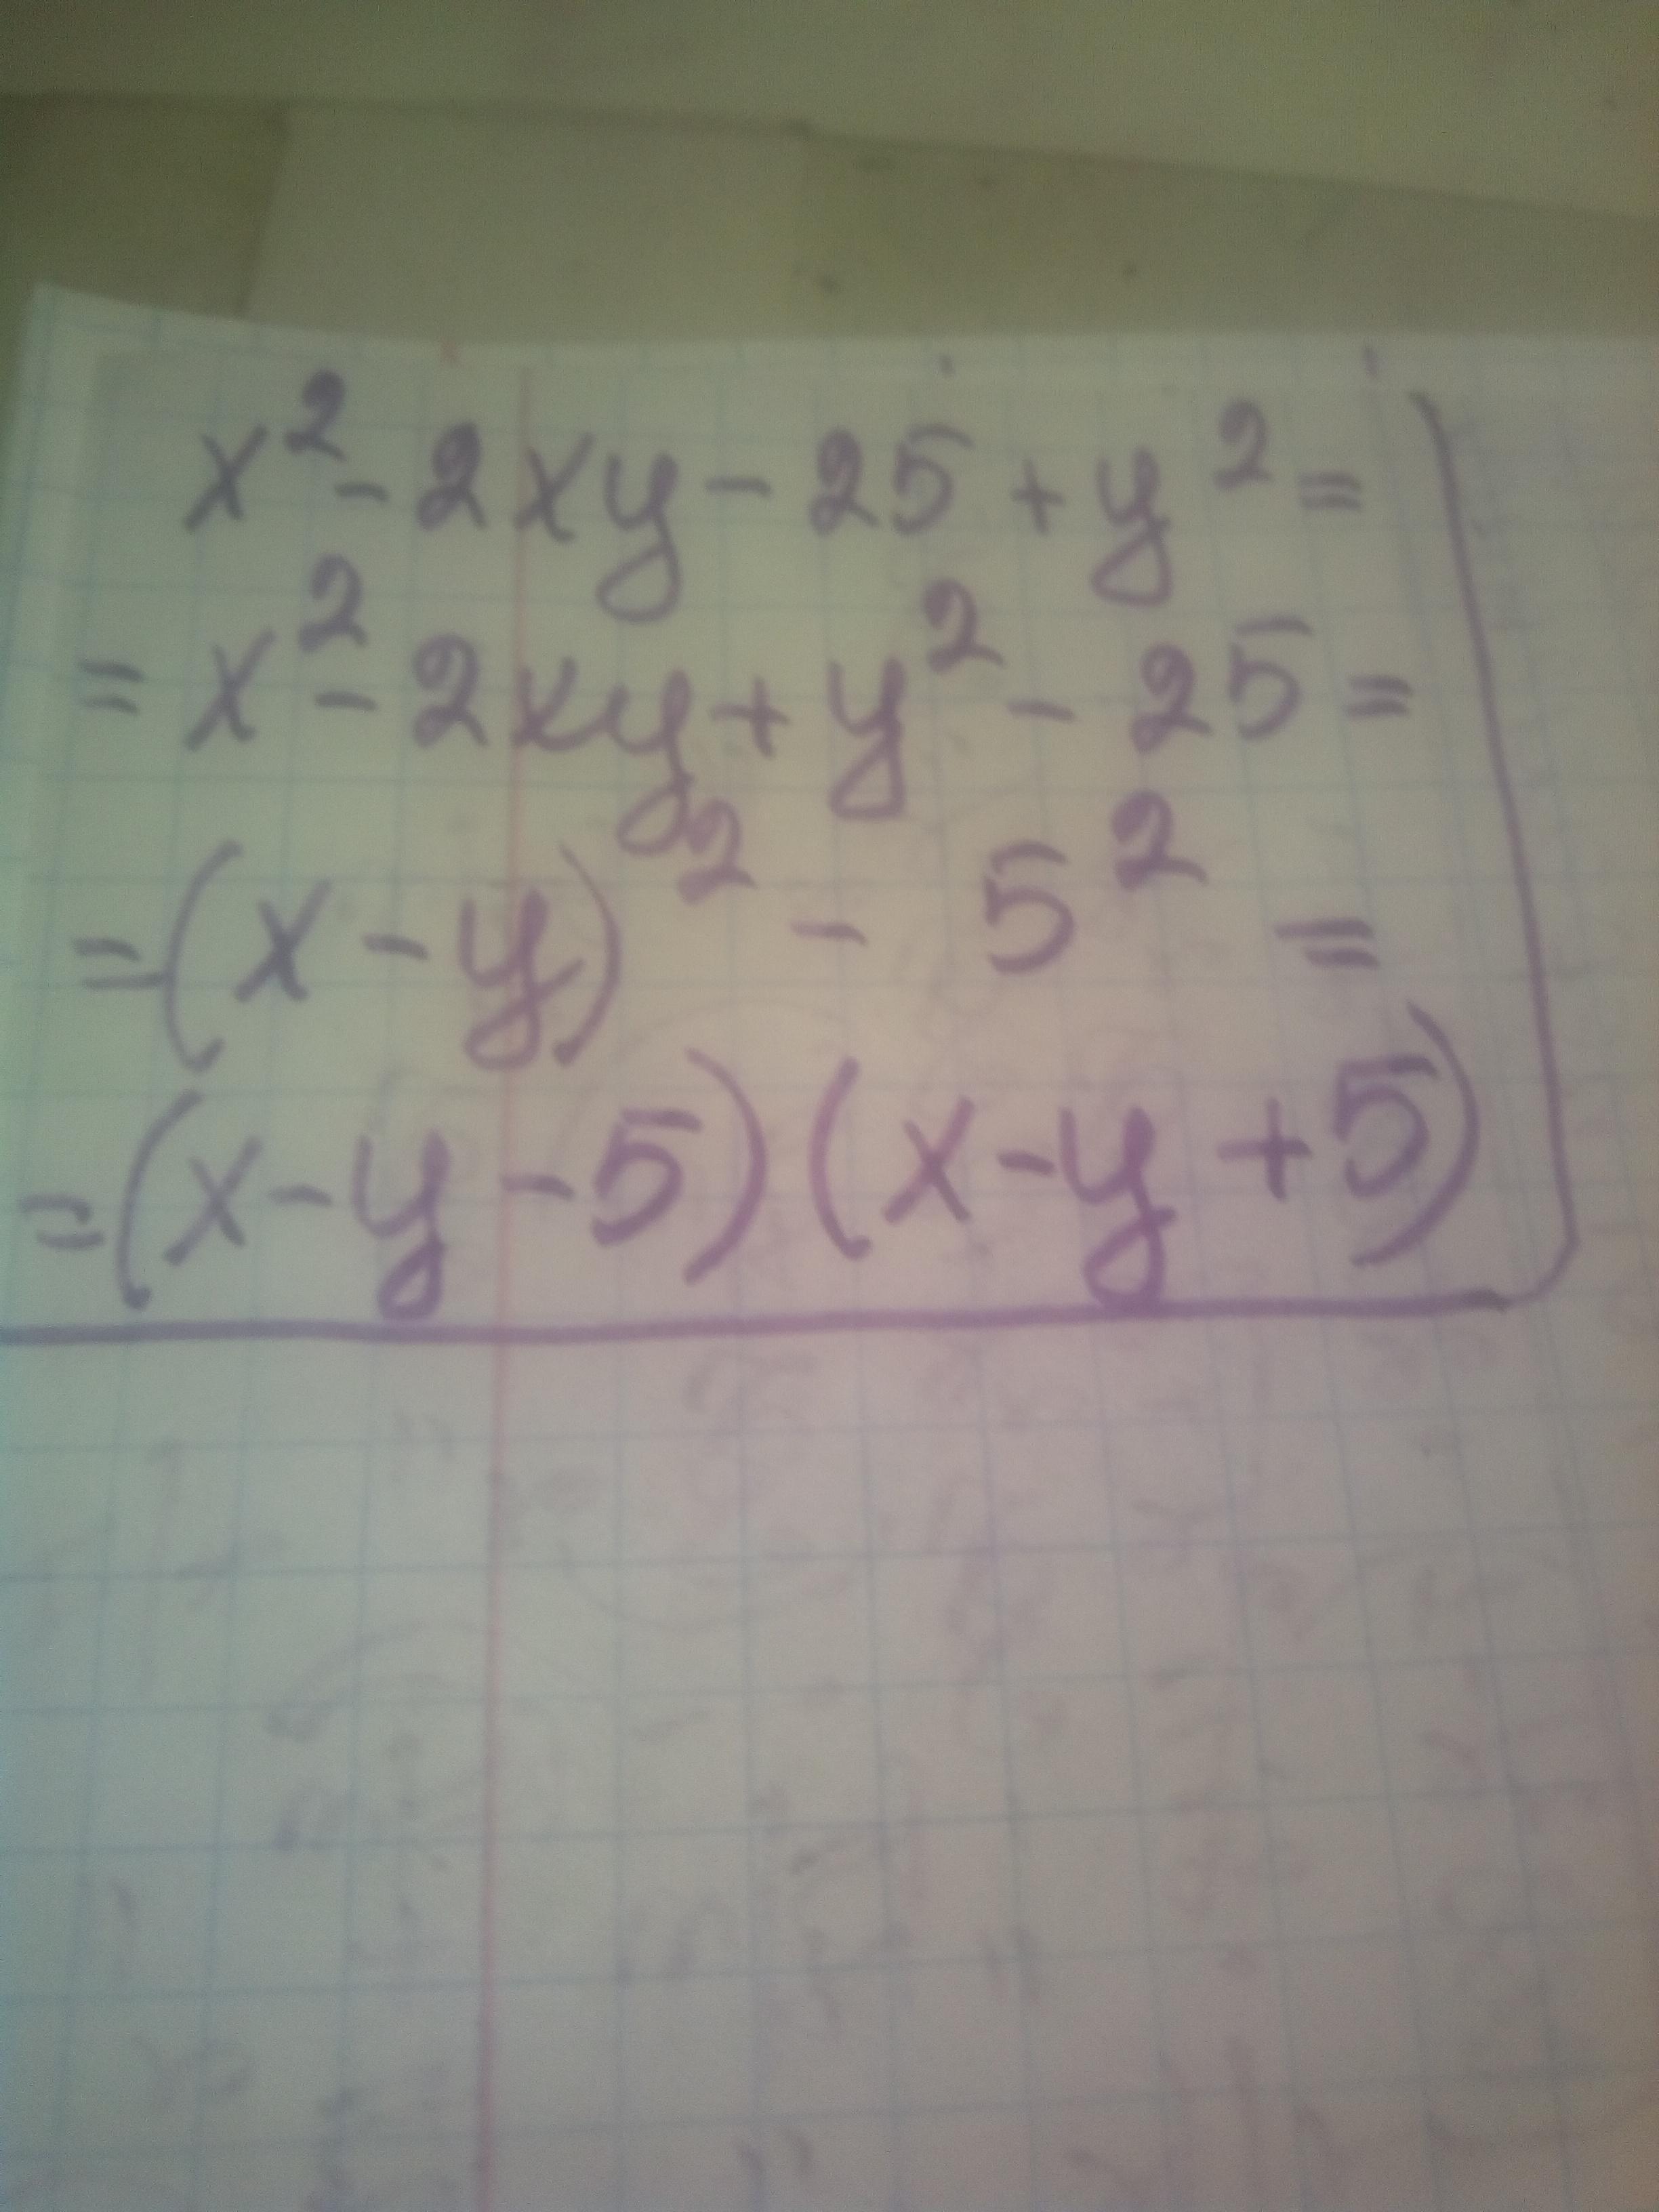 x² - 2xy - 25 + y² =
= x² - 2xy + y² - 25 =
= (x - y)² - 5² =
= (x - y - 5)(x - y + 5)